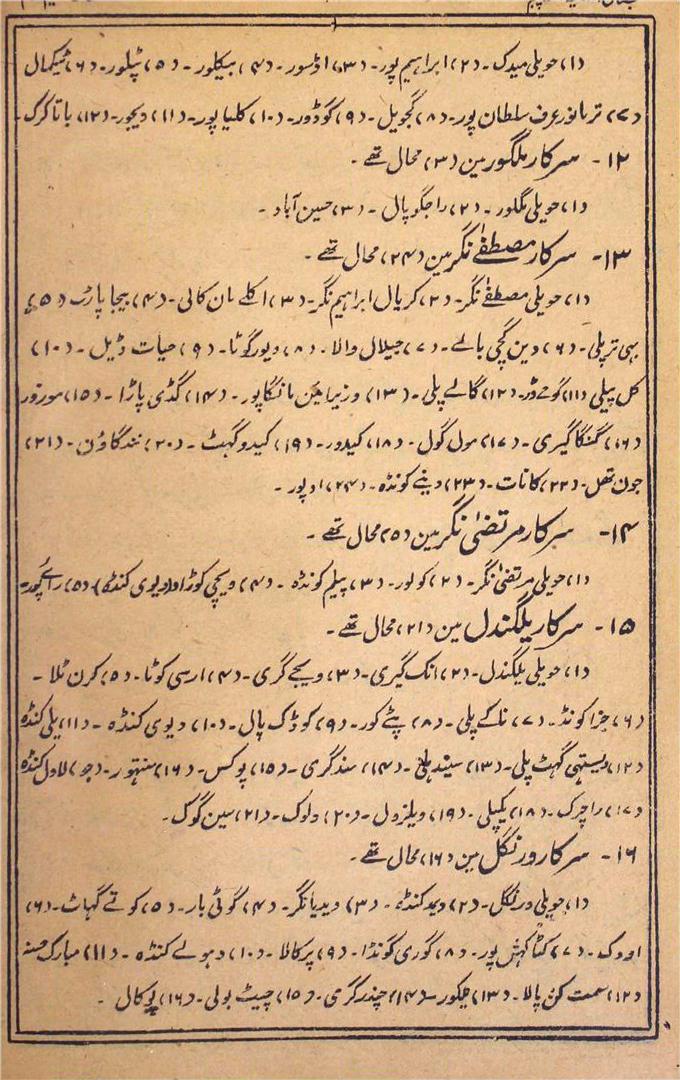 (۱) حویلی میدک۔ (۲) ابراہیم پور۔ (۳) اڈسور۔ (۴) بیکلور۔ (۵) پٹلور۔ (۶) ٹیکمال
(۷) تربانور عرف سلطان پور۔ (۸) گجویل۔ (۹) گوڈور۔ (۱۰) کلیا پور۔ (۱۱) دیجور۔ (۱۲) باتاکرگ
۱۲۔ سرکار ملنگور مین (۳) محال تھے۔
(۱) حویلی ملنگور۔ (۲) راجگوپال۔ (۳) حسین آباد۔
۱۳۔ سرکار مصطفٰے نگر مین (۲۴) محال تھے۔
(۱) حویلی مصطفٰے نگر۔ (۲) کریال ابراہیم نگر۔ (۳) اکلے مان کالی۔ (۴) بیجا پارٹ (۵)
بہی ترپلی۔ (۶) دین گچی بالے۔ (۷) جیلال والا۔ (۸) ویورگوٹا۔ (۹) حیات ڈیل۔ (۱۰)
کل پیلی (۱۱) گوے ڈر۔ (۱۲) گالے پلی۔ (۱۳) وزیرامین مانگاپور۔ (۱۴) گڈی پاڑا۔ (۱۵) مورزور
(۱۶) گنگاگیری۔ (۱۷) مول گول۔ (۱۸) کیدور۔ (۱۹) کیدوگہٹ۔ (۲۰) نندگاؤن۔ (۲۱)
جون تھل۔ (۲۲) کانات۔ (۲۳) دینے کونڈہ۔ (۲۴) اوپور۔
۱۴۔ سرکار مرتضیٰ نگر مین (۵) محال تھے۔
(۱) حویلی مرتضیٰ نگر۔ (۲) کولور۔ (۳) پیلم کونڈہ۔ (۴) ویچی کوڑا (دیوی کنڈہ)۔ (۵) رائے چور۔
۱۵۔ سرکار یلگندل مین (۲۱) محال تھے۔
(۱) حویلی یلگندل۔ (۲) انک گیری۔ (۳) ویجے گری۔ (۴) ارسی کوٹا۔ (۵) کرن ٹلا۔
(۶) جزاکونڈ۔ (۷) ناکے پلی۔ (۸) پٹے کور۔ (۹) کوڈک پال۔ (۱۰) دیوی کنڈہ۔ (۱۱) یلی کنڈہ
(۱۲) دیستہی گہٹ پلی۔ (۱۳) سیند ہلع۔ (۱۴) سندگری۔ (۱۵) پوکس۔ (۱۶) سنتہور۔ لاول کنڈہ
(۱۷) راچرک۔ (۱۸) یکمپلی۔ (۱۹) ویلزول۔ (۲۰) ولوک۔ (۲۱) سین گوک۔
۱۶۔ سرکار ورنگل مین (۱۶) محال تھے۔
(۱) حویلی ورنگل۔ (۲) دیدکنڈہ۔ (۳) ویدیانگر۔ (۴) گوٹی بار۔ (۵) کوتے گہاٹ۔ (۶)
اودک۔ (۷) کٹاکہش پور۔ (۸) گوری گونڈا۔ (۹) پرکالا۔ (۱۰) دہولے کنڈہ۔ (۱۱) مبارک حسنہ
(۱۲) سمت کن پالا۔ (۱۳) چلکور۔ (۱۴) چندرگری۔ (۱۵) چیٹ بولی۔ (۱۶) پوکال۔